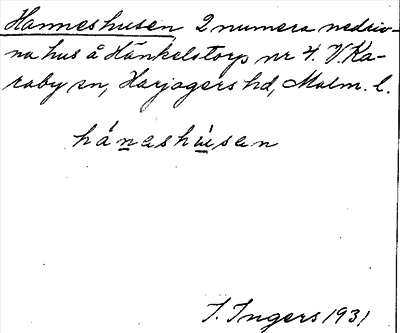 Hanneshusen 2 numera nedriv-
na hus å Hänkelstorp nr 4. V. Ka-
raby sn, Harjagers hd, Malm. l.
hánashúsan
I. Ingers 1931